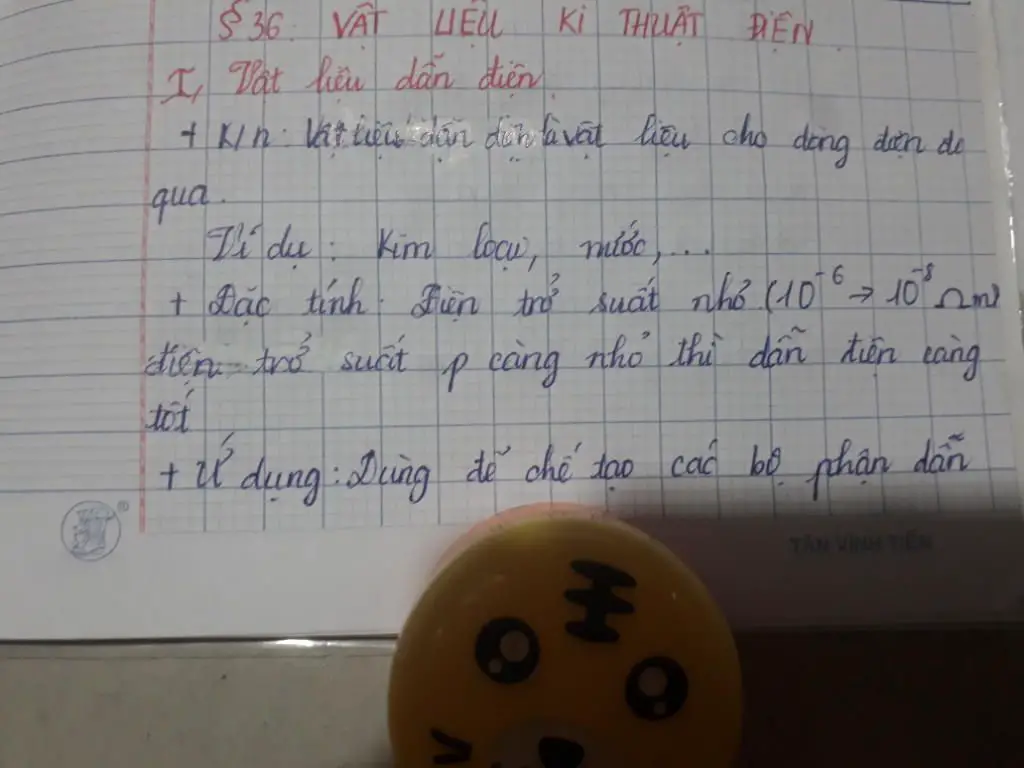 § 36. VẬT LIỆU KĨ THUẬT ĐIỆN.
I, Vật liệu dẫn điện.
+ K/n: Vật liệu dẫn điện là vật liệu cho dòng điện đi
qua.
Ví dụ: Kim loại, nước,...
+ Đặc tính: Điện trở suất nhỏ (10⁻⁶ → 10⁻⁸ Ωm)
điện trở suất p càng nhỏ thì dẫn điện càng
tốt
+ Ứ dụng: Dùng để chế tạo các bộ phận dẫn
TÂN VĨNH TIẾN